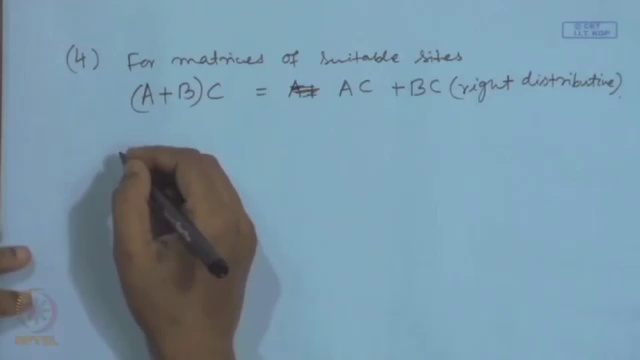 © CET
I.I.T. KGP
(4) For matrices of suitable sites
(A+B)C = AC + BC (right distributive).
NPTEL